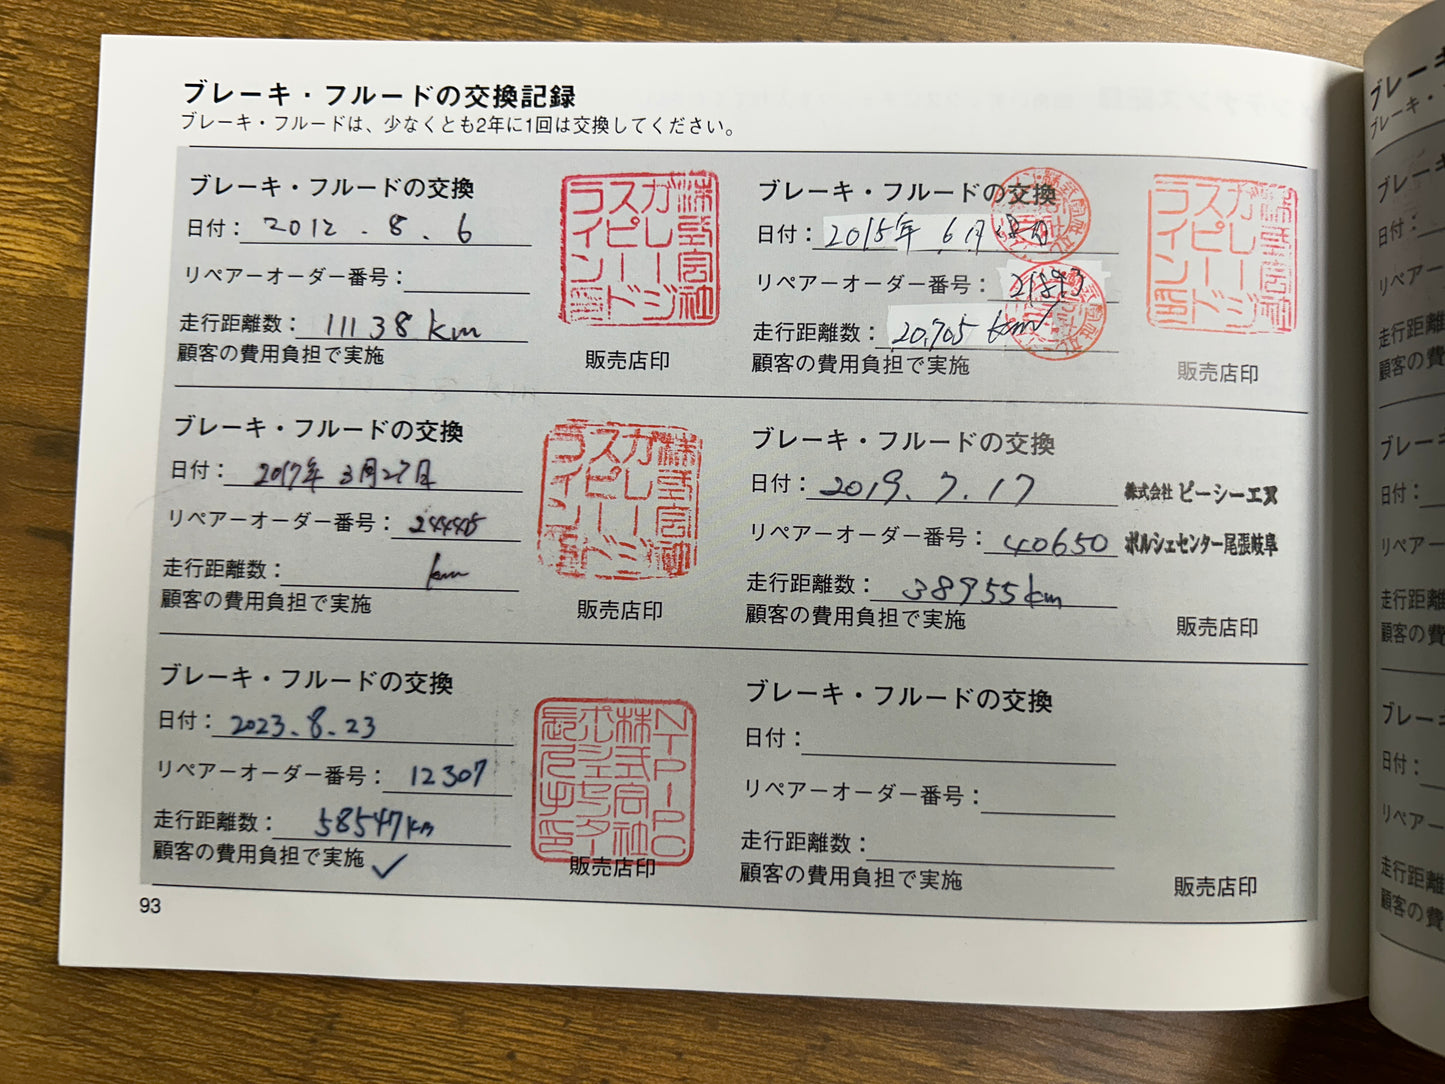 ブレーキ・フルードの交換記録
ブレーキ・フルードは、少なくとも2年に1回は交換してください。
ブレーキ・フルードの交換
日付： 2012 . 8 . 6
リペアーオーダー番号：
走行距離数： 11138 km
顧客の費用負担で実施
株式会社ガレージスピードライン印
販売店印
ブレーキ・フルードの交換
日付： 2015年 6月 日
リペアーオーダー番号：
走行距離数： 20,705 km
顧客の費用負担で実施
株式会社ガレージスピードライン印
販売店印
ブレーキ・フルードの交換
日付： 2017年 3月27日
リペアーオーダー番号： 244445
走行距離数： km
顧客の費用負担で実施
株式会社ガレージスピードライン印
販売店印
ブレーキ・フルードの交換
日付： 2019. 7. 17
リペアーオーダー番号： 40650
走行距離数： 38955km
顧客の費用負担で実施
株式会社 ピーシーエヌ
ポルシェセンター尾張岐阜
販売店印
ブレーキ・フルードの交換
日付： 2023. 8. 23
リペアーオーダー番号： 12307
走行距離数： 58547km
顧客の費用負担で実施 ✓
販売店印
ブレーキ・フルードの交換
日付：
リペアーオーダー番号：
走行距離数：
顧客の費用負担で実施
販売店印
93
ブレーキ
ブレーキ・
ブレー
日付：
リペアー
走行距離
顧客の費
ブレー
日付：
リペアー
走行距離
顧客の費
ブレー
日付：
リペアー
走行距離
顧客の費